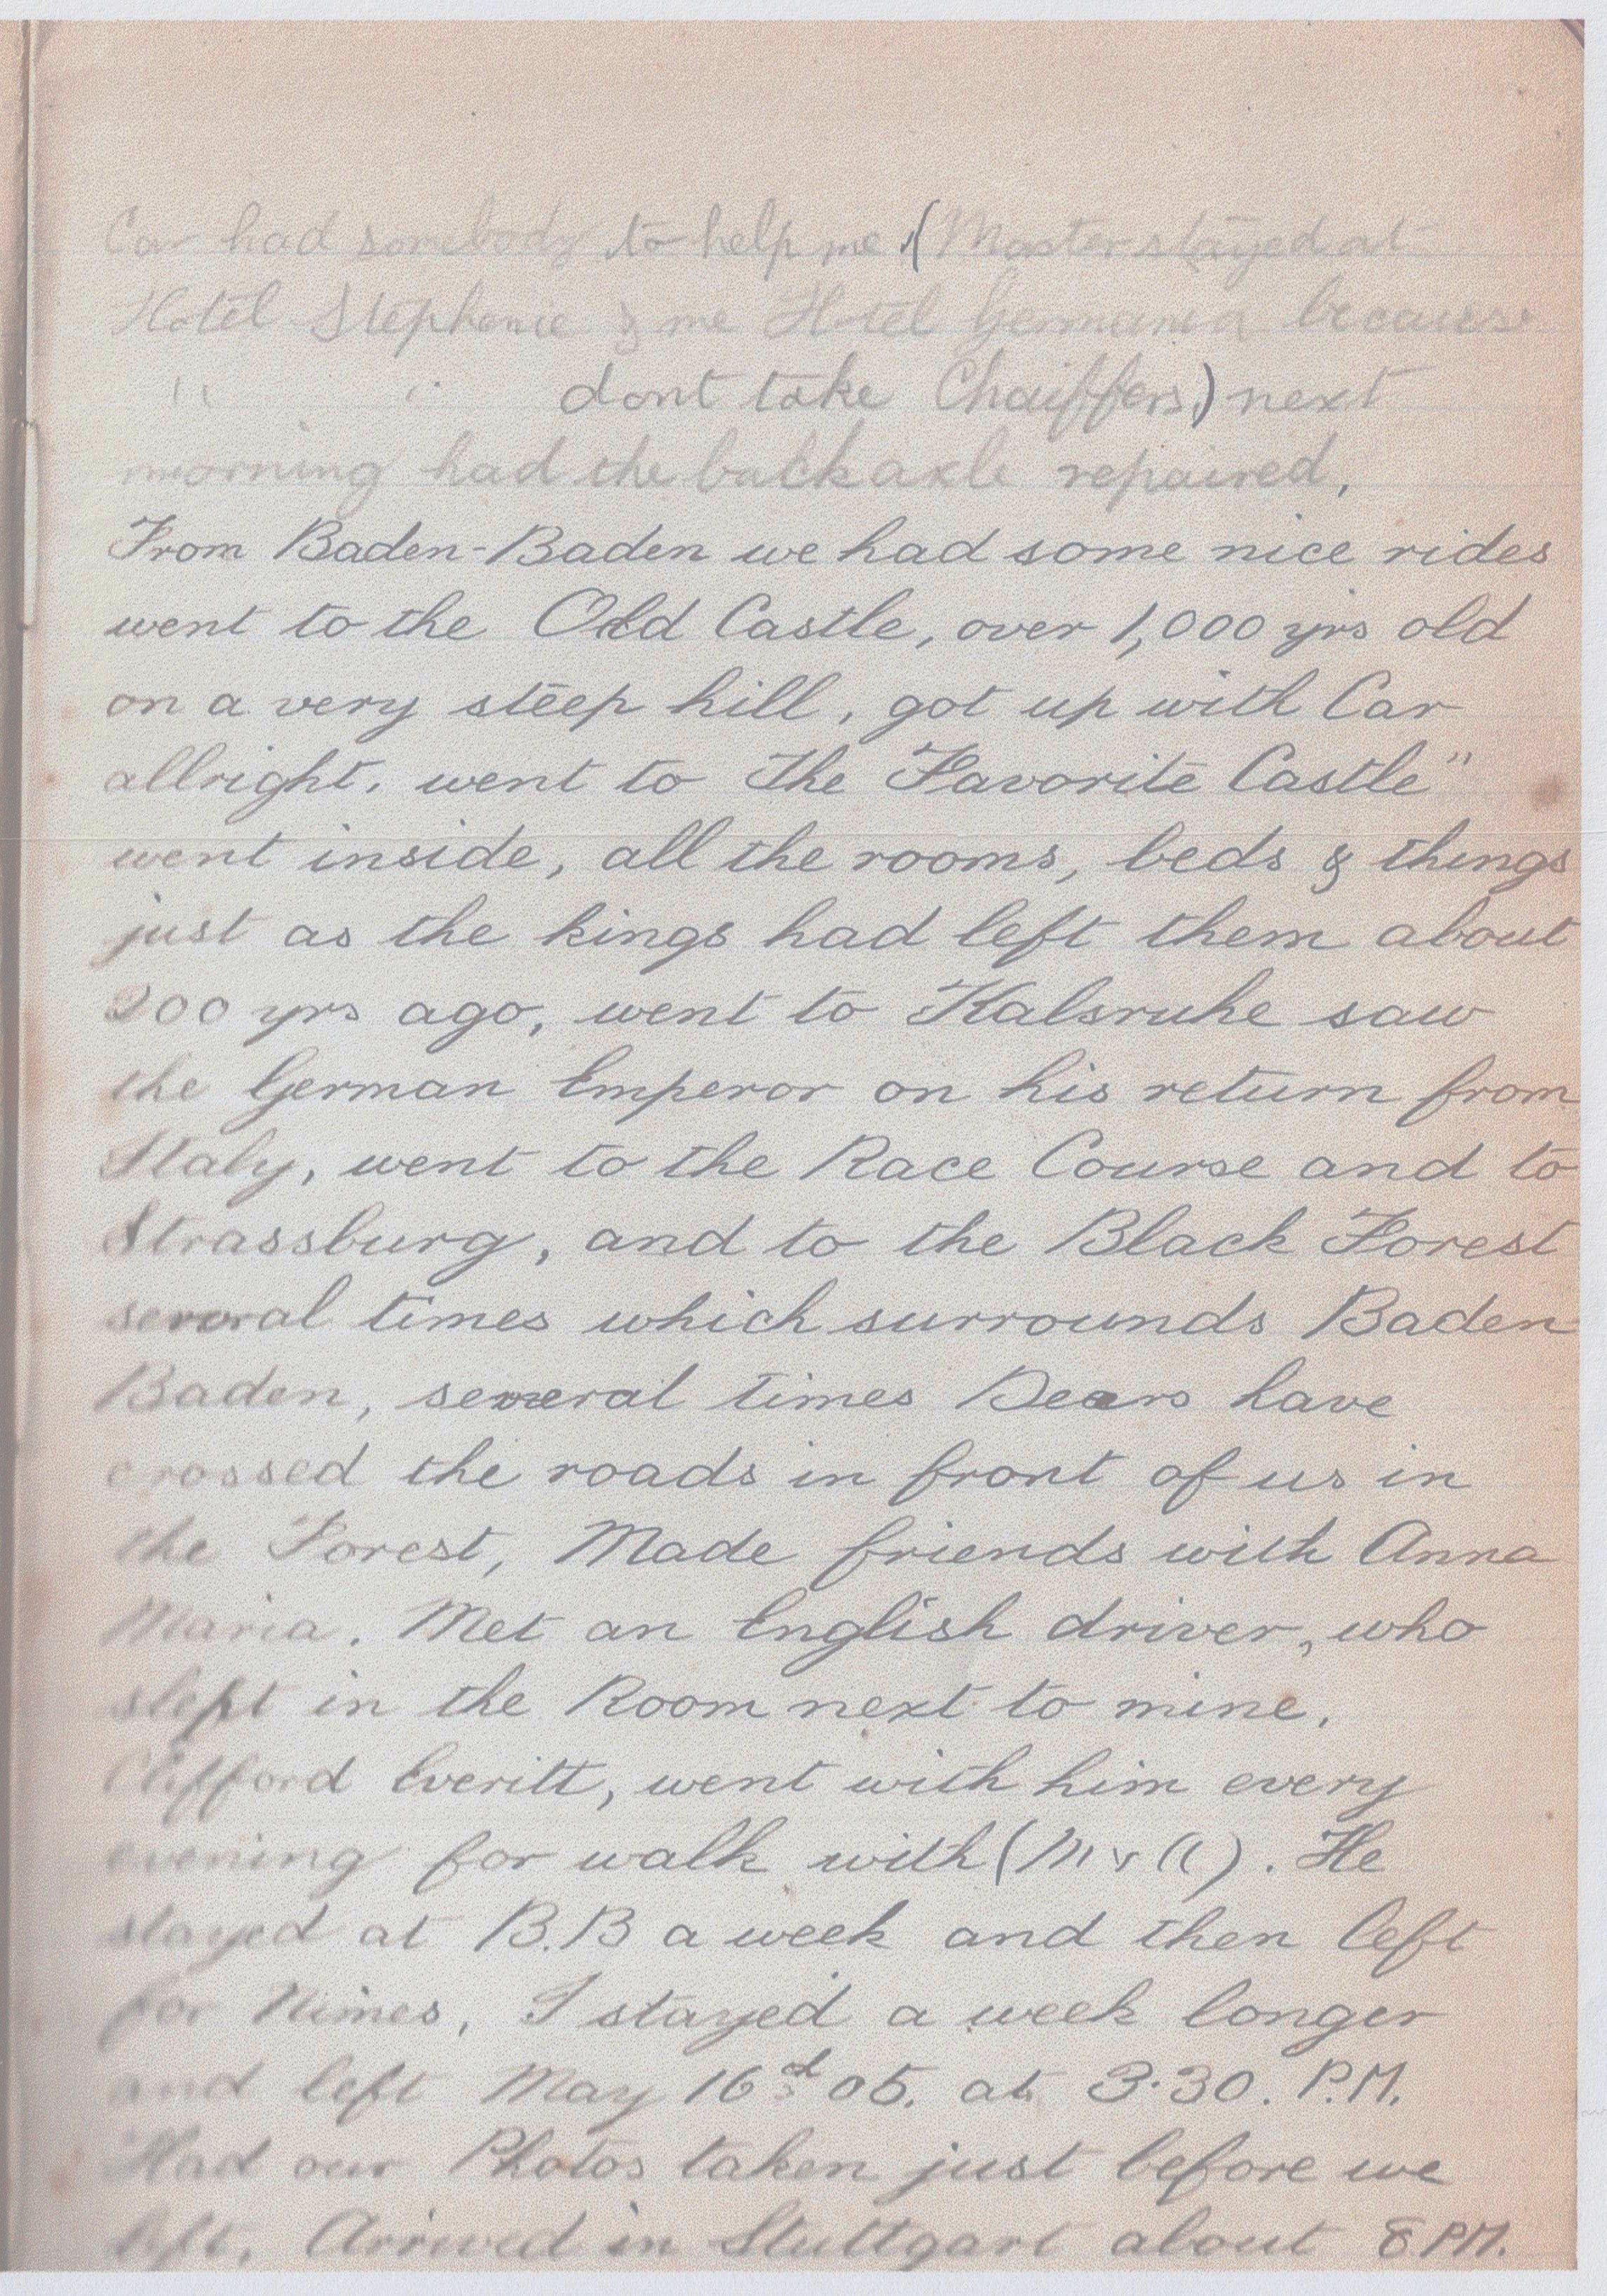 Car had somebody to help me, (Master stayed at
Hotel Stephanie & me Hotel Germania because
" " dont take Chaiffers,) next
morning had the back axle repaired,
From Baden-Baden we had some nice rides
went to the Old Castle, over 1,000 yrs old
on a very steep hill, got up with Car
allright. went to The Favorite Castle"
went inside, all the rooms, beds & things
just as the kings had left them about
200 yrs ago, went to Kalsruhe saw
the German Emperor on his return from
Italy, went to the Race Course and to
Strassburg, and to the Black Forest
several times which surrounds Baden
Baden, several times Dears have
crossed the roads in front of us in
the Forest, Made friends with Anna
Maria. Met an English driver, who
slept in the Room next to mine,
Clifford Everitt, went with him every
evening for walk with ( ). He
stayed at B.B a week and then left
for Nimes, I stayed a week longer
and left May 16d 05. at 3.30. P.M.
Had our Photos taken just before we
left. Arrived in Stuttgart about 8 P.M.